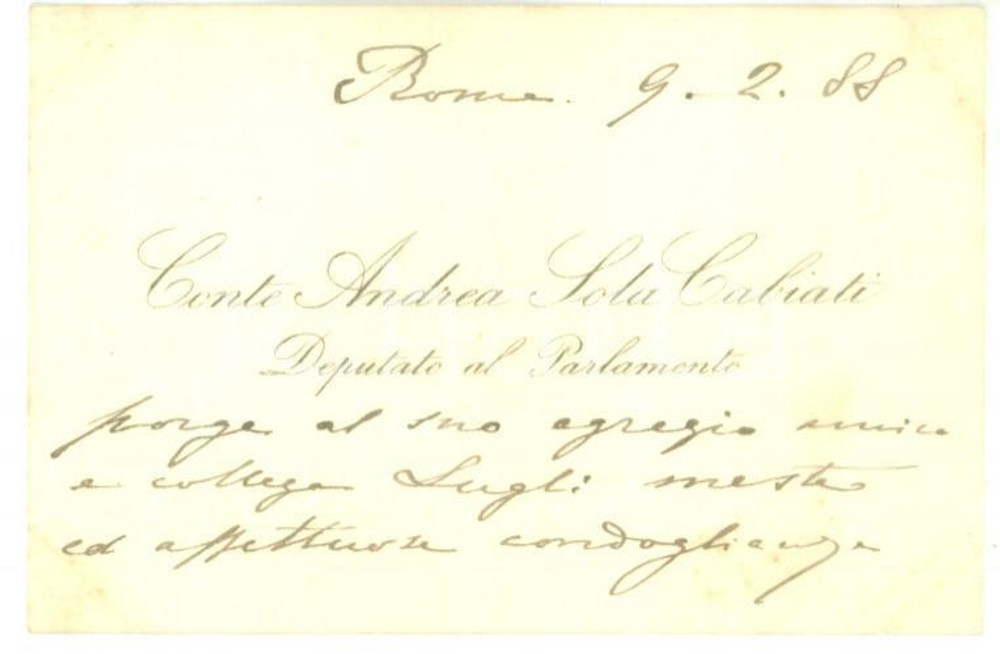 Roma. 9. 2. 88
Conte Andrea Sola Cabiati
Deputato al Parlamento
porge al suo egregio amico
e collega Lugli meste
ed affettuose condoglianze